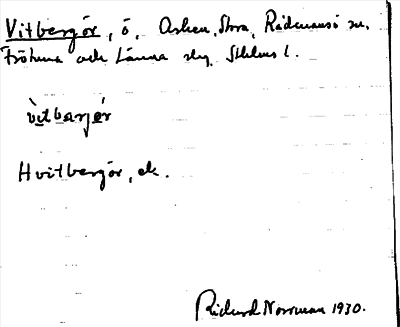 Vitbergör, ö, Asken, Stora, Rådmansö sn,
Fröhuna och Länna skg, Sthlms l.
vìtbarjér
Hvitbergör, ek.
Rickard Norrman 1930.